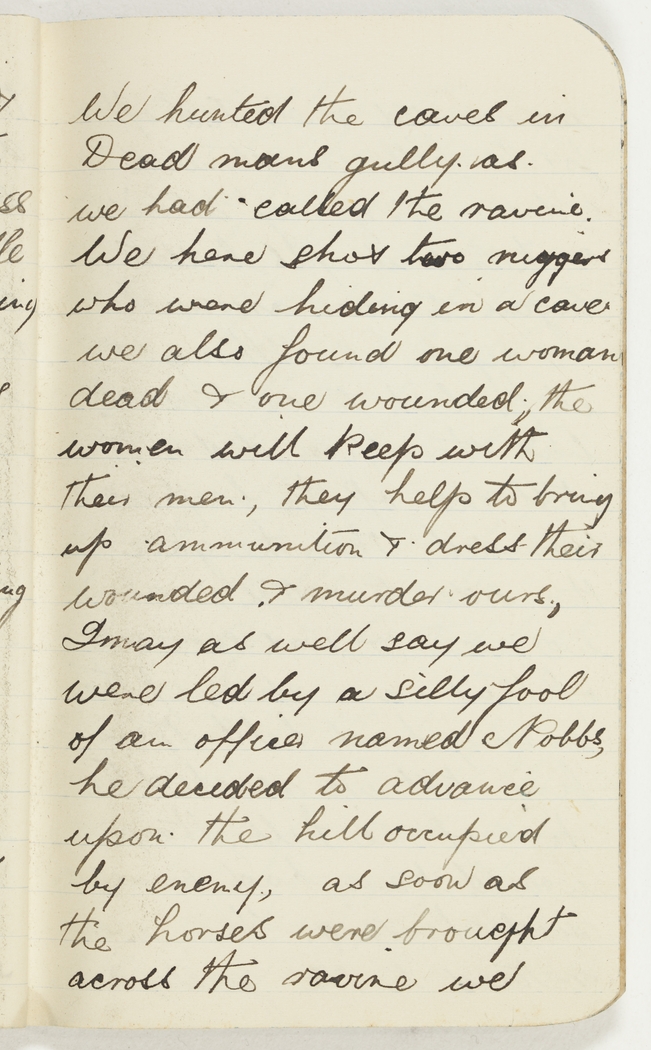 We hunted the caves in
Dead mans gully. as.
we had called the ravine.
We here shot two niggers
who were hiding in a cave
we also found one woman
dead & one wounded, the
women will keep with
their men, they help to bring
up ammunition & dress their
wounded & murder ours,
I may as well say we
were led by a silly fool
of an officer named Nobbs,
he decided to advance
upon the hill occupied
by enemy, as soon as
the horses were brought
across the ravine we